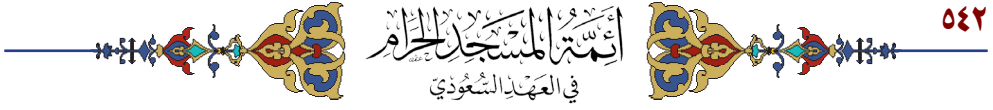 ٥٤٢
أَئِمَّةُ المَسْجِدِ الحَرَامِ
فِي العَهْدِ السُّعُودِيّ